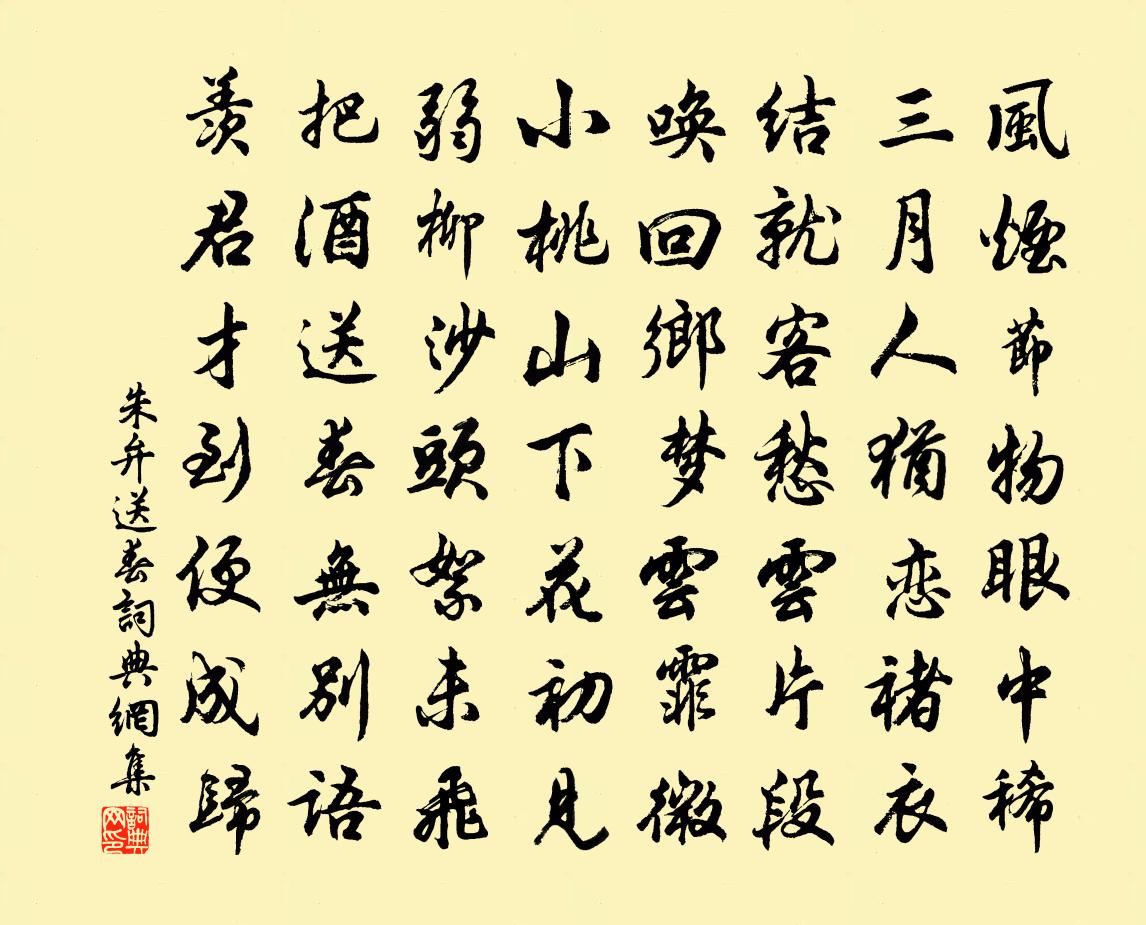 風煙節物眼中稀
三月人猶恋褚衣
結就客愁雲片段
喚回鄉梦雲霏微
小桃山下花初見
弱柳沙頭絮未飛
把酒送春無別語
羨君才到便成歸
朱弁送春詞典網集
詞典网印